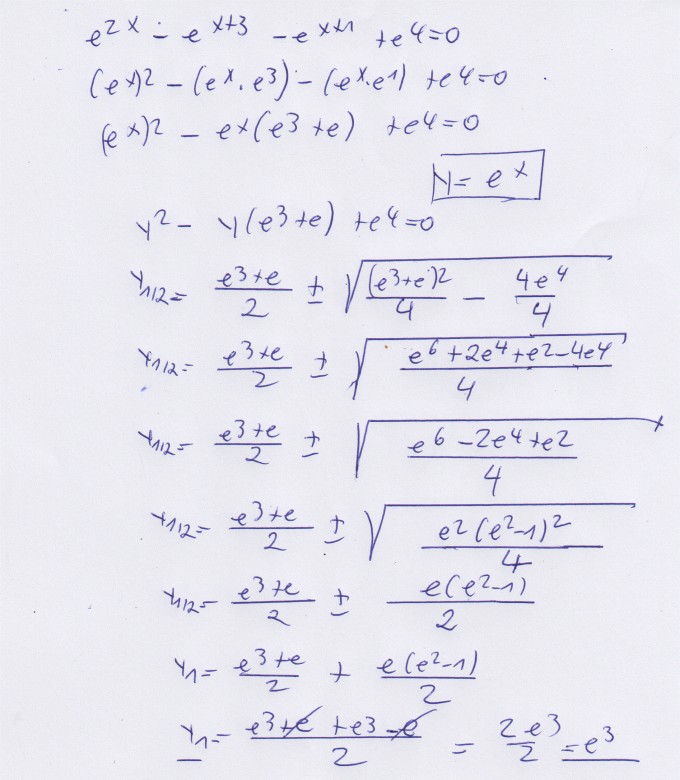 e^{2x} - e^{x+3} - e^{x+1} + e^4 = 0
(e^x)^2 - (e^x · e^3) - (e^x · e^1) + e^4 = 0
(e^x)^2 - e^x (e^3 + e) + e^4 = 0
y = e^x
y^2 - y (e^3 + e) + e^4 = 0
y_{1/2} = \frac{e^3 + e}{2} ± \sqrt{\frac{(e^3 + e)^2}{4} - \frac{4e^4}{4}}
y_{1/2} = \frac{e^3 + e}{2} ± \sqrt{\frac{e^6 + 2e^4 + e^2 - 4e^4}{4}}
y_{1/2} = \frac{e^3 + e}{2} ± \sqrt{\frac{e^6 - 2e^4 + e^2}{4}}
y_{1/2} = \frac{e^3 + e}{2} ± \sqrt{\frac{e^2 (e^2 - 1)^2}{4}}
y_{1/2} = \frac{e^3 + e}{2} ± \frac{e(e^2 - 1)}{2}
y_1 = \frac{e^3 + e}{2} + \frac{e(e^2 - 1)}{2}
y_1 = \frac{e^3 + e + e^3 - e}{2} = \frac{2e^3}{2} = e^3